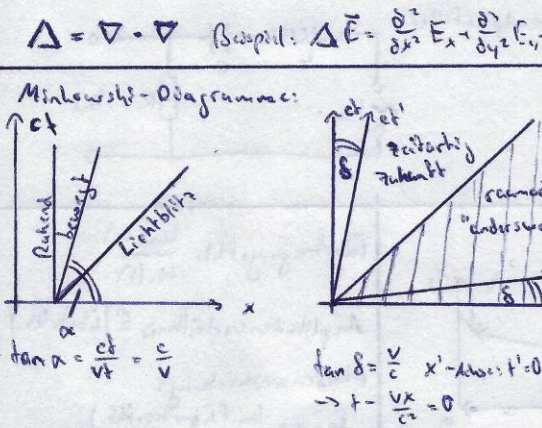 Δ = ∇ · ∇ Beispiel: Δ E⃗ = ∂²/∂x² E_x + ∂²/∂y² E_y
Minkowski-Diagramme:
ct
Ruhend
bewegt
Lichtblitz
x
α
tan α = ct/vt = c/v
ct
ct'
δ
zeitartig
Zukunft
"anderswo
δ
tan δ = v/c x'-Achse: t'=0
→ t - vx/c² = 0